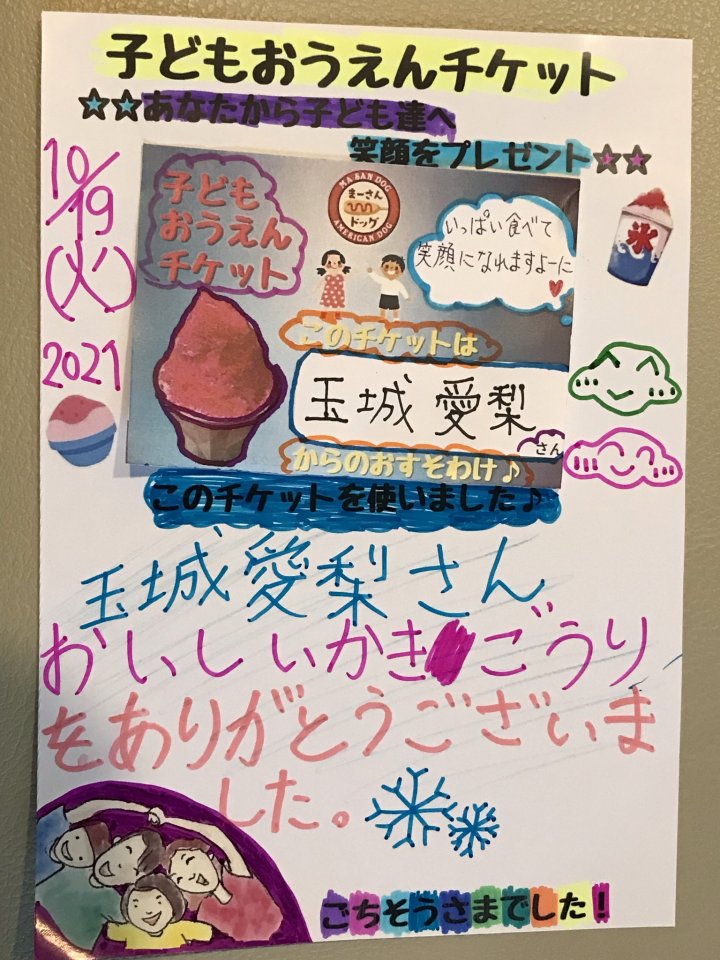 子どもおうえんチケット
☆☆あなたから子ども達へ
笑顔をプレゼント☆☆
10/19
(火)
2021
子ども
おうえん
チケット
MA-SAN DOG
まーさん
ドッグ
AMERICAN DOG
いっぱい食べて
笑顔になれますよーに
氷
このチケットは
玉城 愛梨
さん
からのおすそわけ♪
このチケットを使いました♪
玉城愛梨さん
おいしいかきごうり
をありがとうございま
した。
ごちそうさまでした!